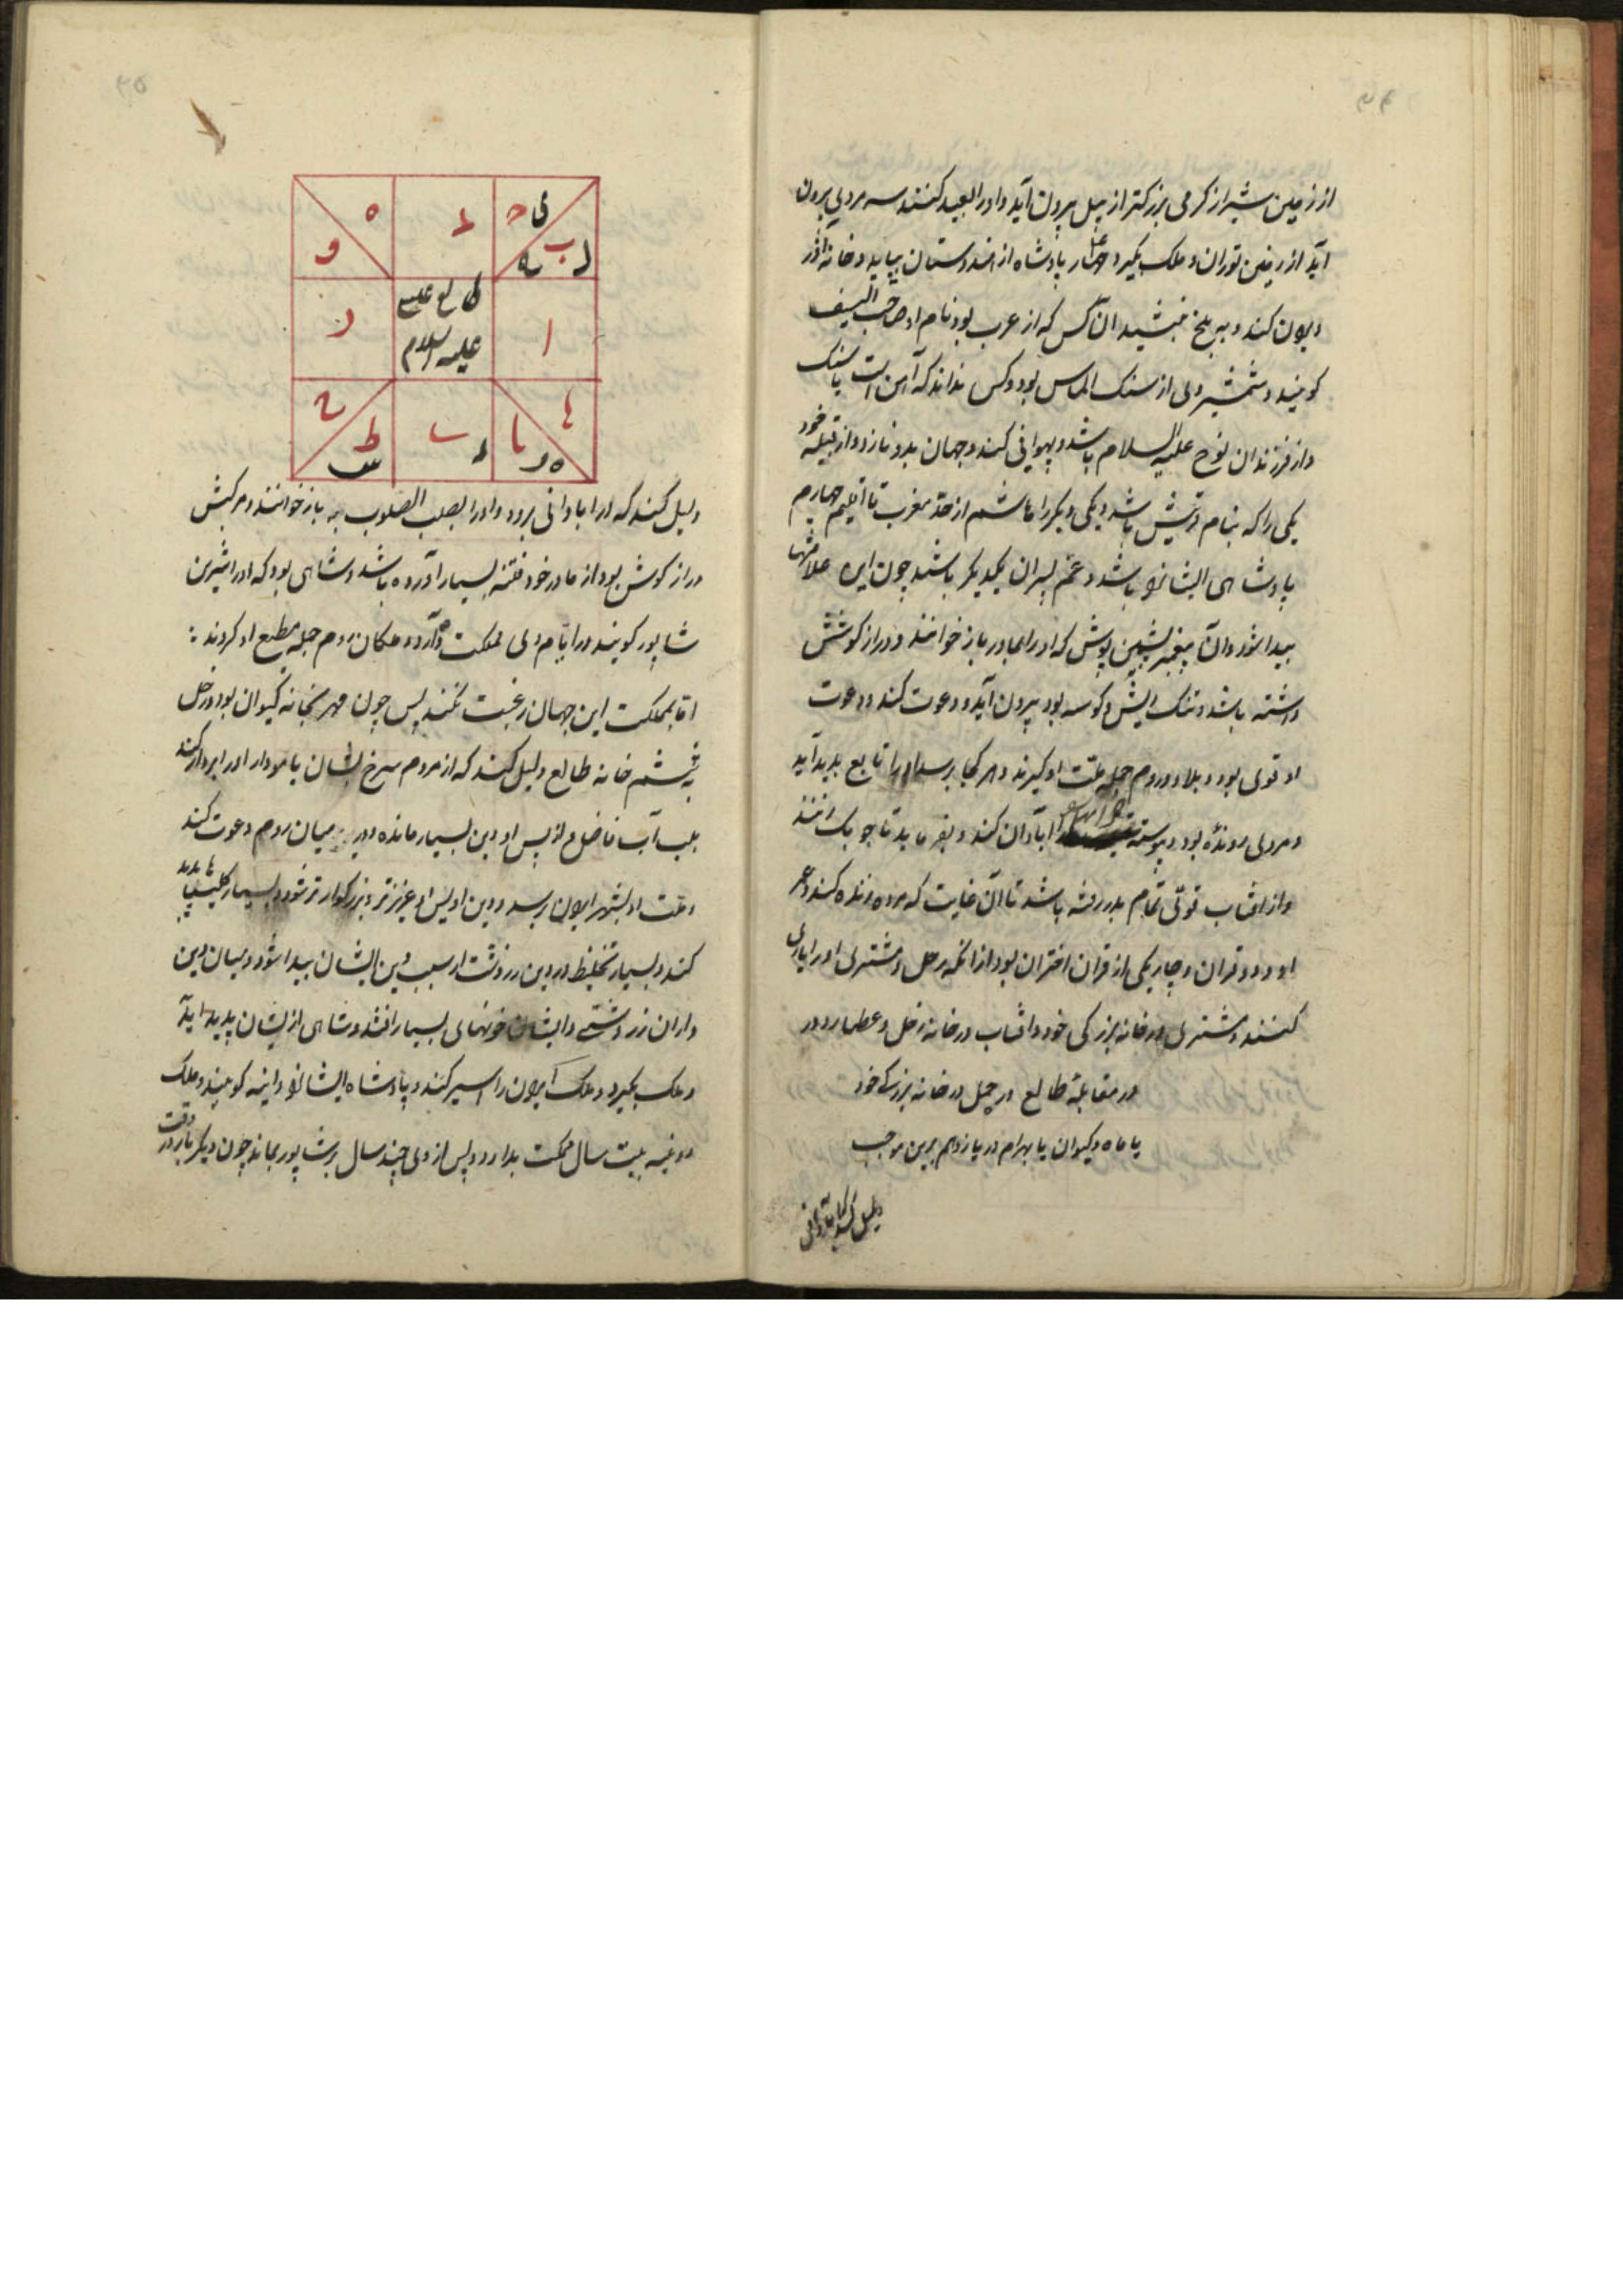 از زمین شیراز کرمی بزرکتر از پیل بیرون آید و او را البعید کنند سه مردی بیرون
آید از زمین توران و ملک بکیرد پادشاه از هندوستان بیاید و خانه آذر
ویران کند و به بلخ بنشیند آن کس که از عرب بود نام او صاحب السیف
کویند و شمشیر وی از سنک الماس بود و کس نداند که آهن است یا سنک
و از فرزندان نوح علیه السلام باشد و پهلوانی کند و جهان بدو نازد و از قبیله خود
یکی را که بنام قریش باشد و یکی دیکر را هاشم از حد مغرب تا اقلیم چهارم
پادشاهی ایشانرا باشد و عم پسران یکدیکر باشند چون این علامتها
پیدا شود و آن پیغمبر پشمین پوش که او را بمادر باز خوانند و درازکوشش
داشته باشد و تنک ریش و کوسه بود بیرون آید و دعوت کند و دعوت
او قوی بود و بلاد روم جمله ملت او کیرند و هر کجا برسد او را تابع پدید آید
و مردی رونده بود و پیوسته آبادان کند و بفرماید تا چوبک زنند
و از افتاب قوتی تمام بدو رفته باشد تا آن غایت که مرده زنده کند و عمر
او دو قران و چاریکی از قران اختران بود از آنکه زحل و مشتری او را یاری
کنند و مشتری در خانه بزرکی خود و افتاب در خانه زحل و عطارد در
در مقابله طالع در حمل در خانه بزرک خود
با ماه و کیوان با بهرام در یازدهم برین موجب
دلیل کند که آبادانی
ه
و
د
ح
ی
ب
ر
ز
طالع عیسی
علیه السلام
ا
ح
ط
س
ی
د
یا
دلیل کند که او را بآبادانی برود و او را بصلب الصلوب به باز خوانند و مرکبش
درازکوش بود از مادر خود فتنه بسیار آورده باشد و شاهی بود که او را شیرین
شاپور کویند در ایام وی مملکت و ملکان روم جمله مطیع او کردند
اما بمملکت این جهان رغبت نکند پس چون مهر بخانه کیوان بود و زحل
به ششم خانه طالع دلیل کند که از مردم سرخ نشان با مودار او را بردار کنند
بلب آب فاضل و از پس او دین بسیار مانده و در میان روم دعوت کند
و ملت او بشهر ایران برسد و دین او پس او عزیزتر و بزرکوارتر شود و بسیار کلیسیا پدید
کند و بسیار تخلیط در دین زردشت از سبب دین ایشان پیدا شود و میان دین
داران زردشتی و ایشان خونهای بسیار افتد و شاهی از ایشان پدید آید
و ملک بکیرد و ملک ایران را اسیر کند و پادشاه ایشانرا کویند و ملک
بیست سال مملکت بدارد و پس از وی چند سال شاپور بماند چون دیکر بار در وقت